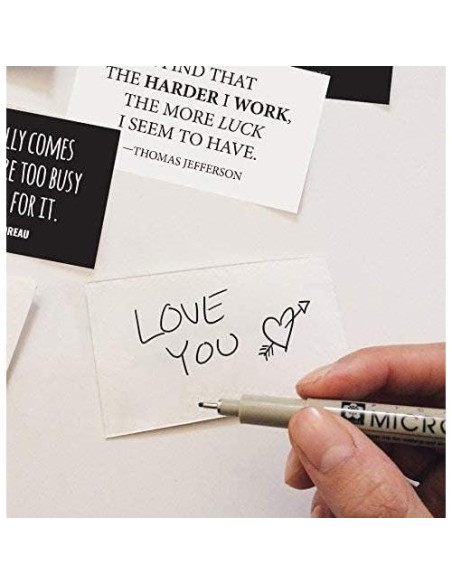 FIND THAT
THE HARDER I WORK,
THE MORE LUCK
I SEEM TO HAVE.
—THOMAS JEFFERSON
LLY COMES
RE TOO BUSY
FOR IT.
REAU
LOVE
YOU
MICR